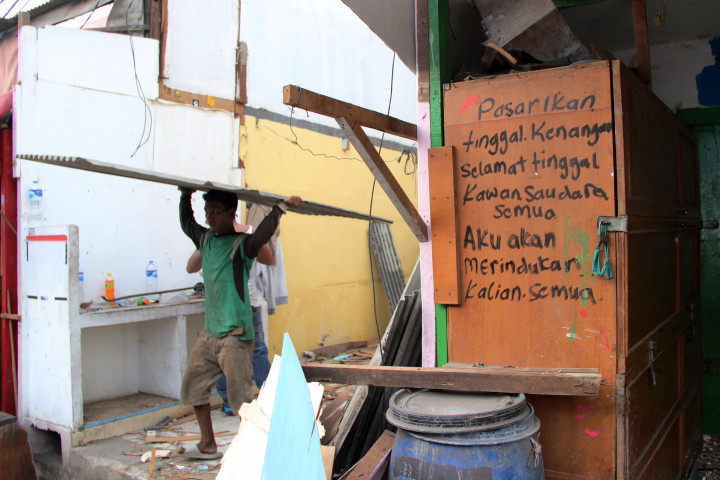 Pasar Ikan
tinggal. Kenangan
Selamat tinggal
Kawan, saudara
Semua
Aku akan
merindukan
Kalian. Semua